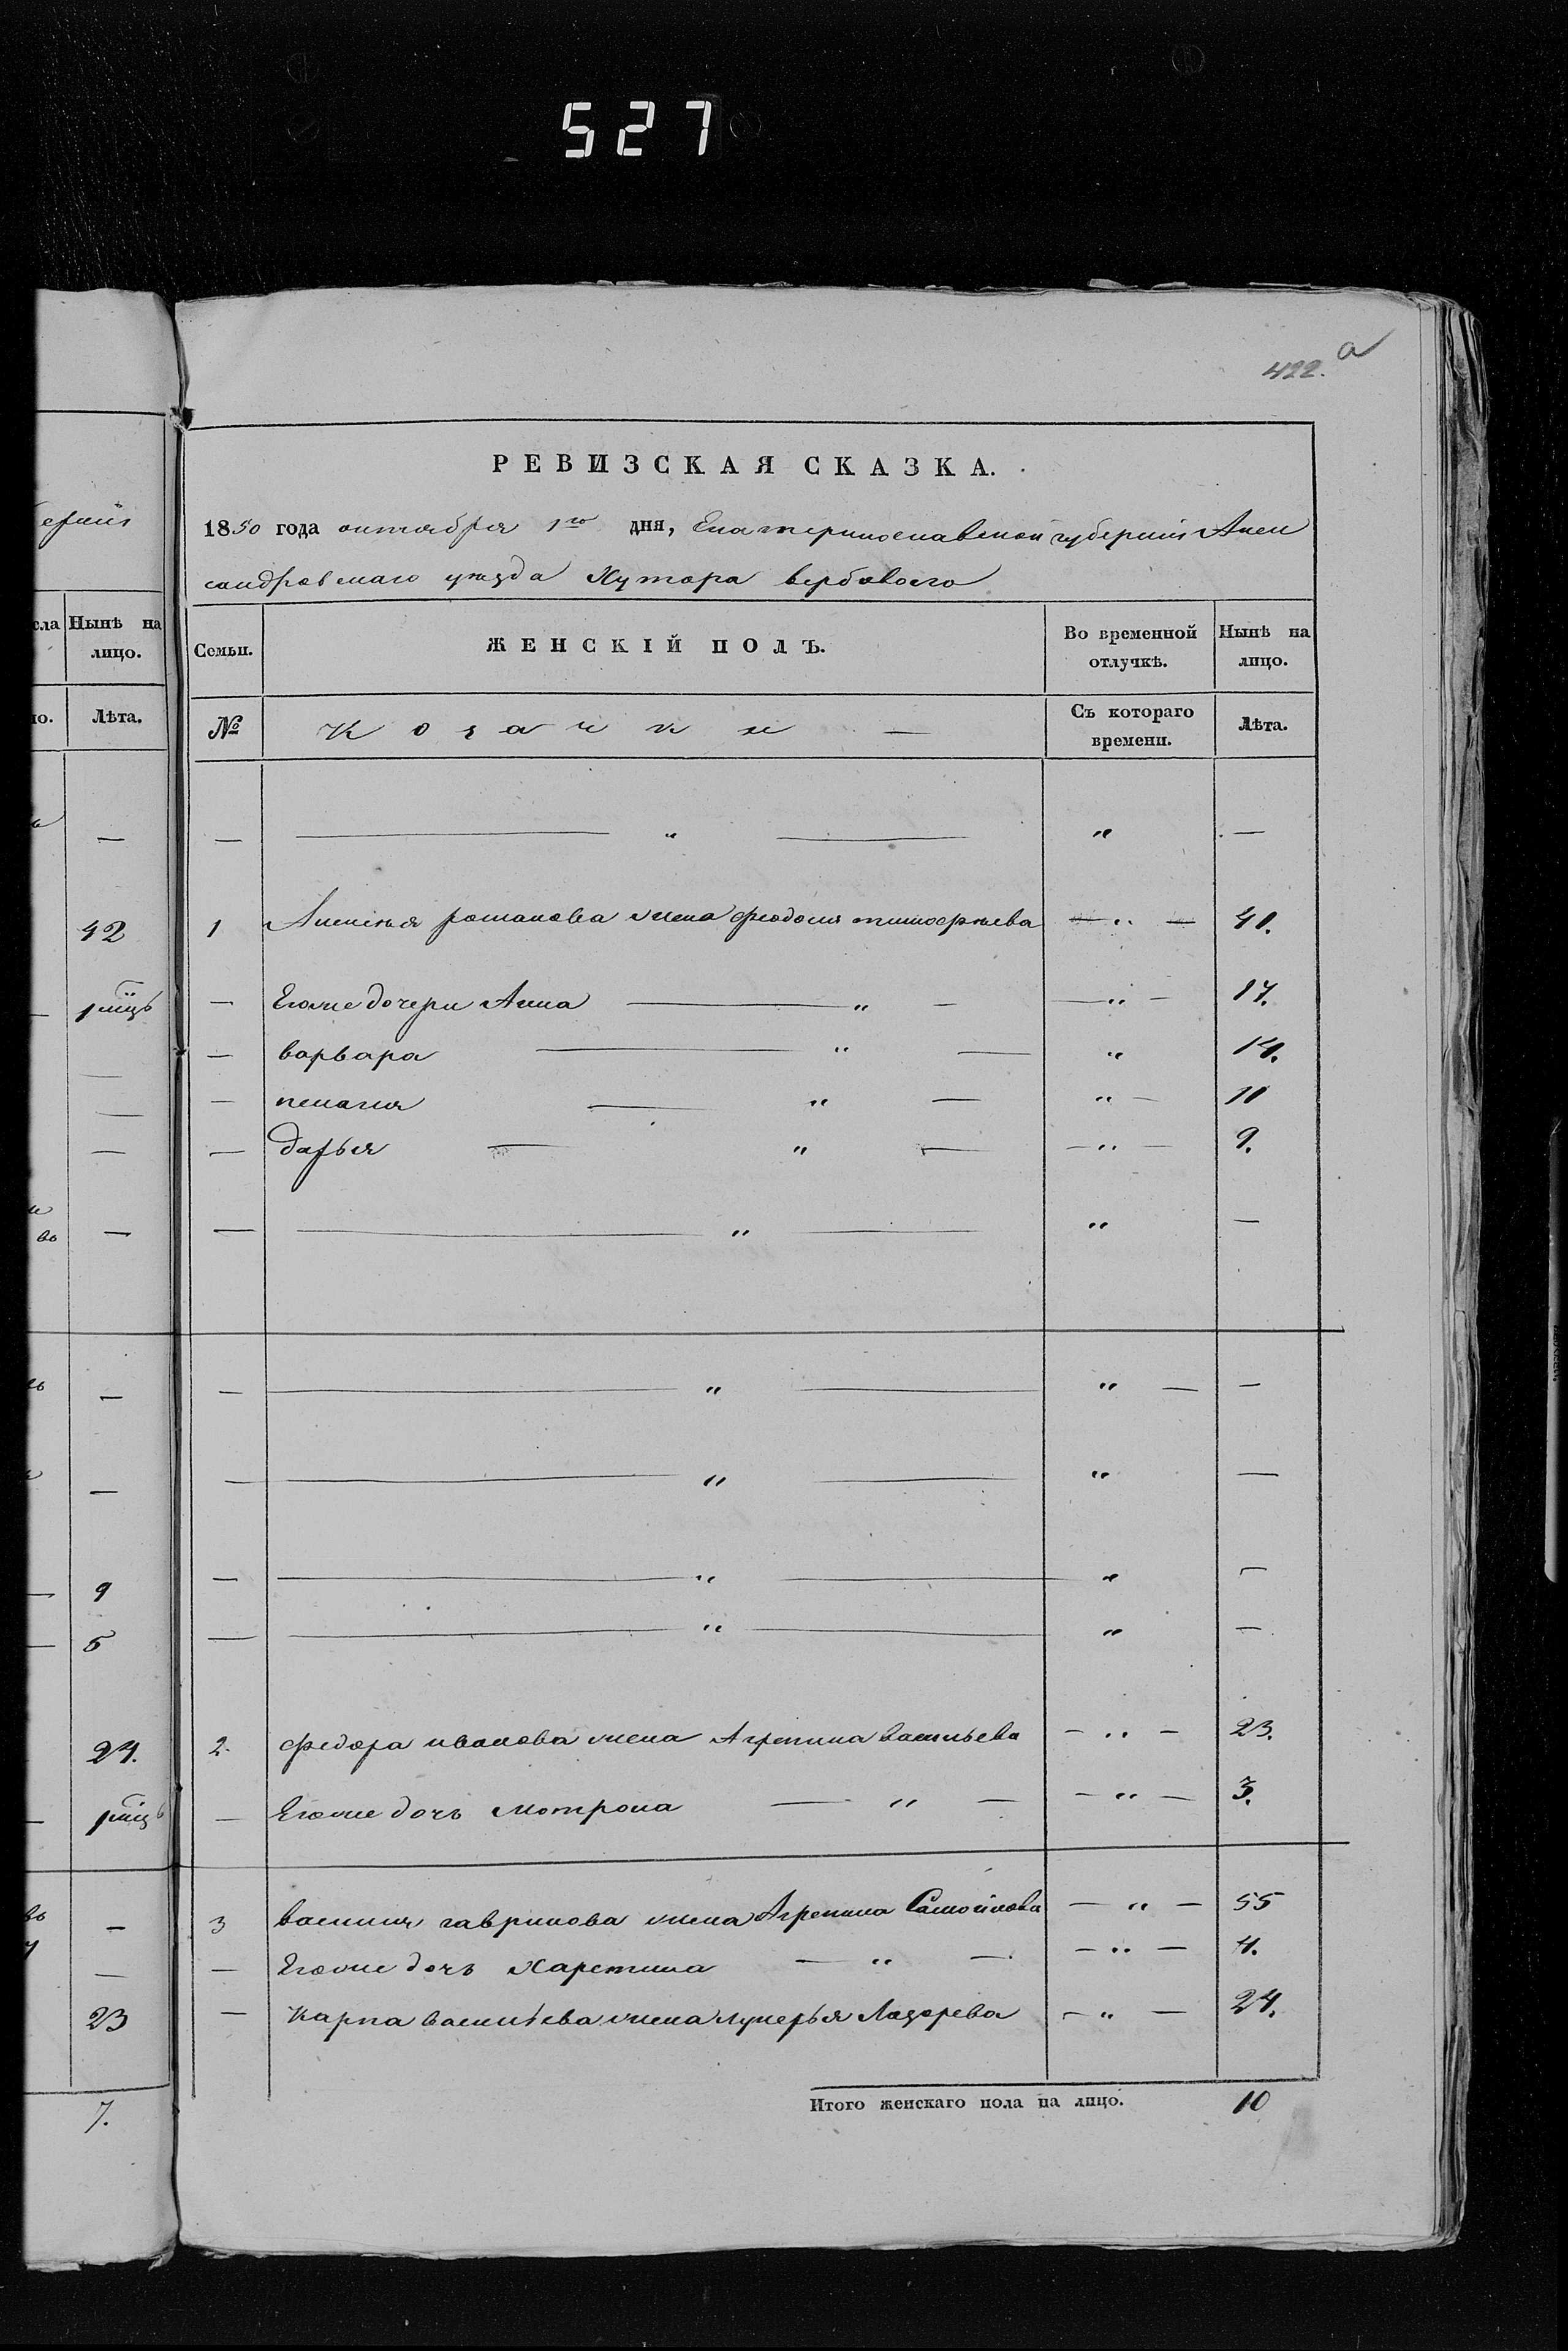 527
422. а
РЕВИЗСКАЯ СКАЗКА.
1850 года октября 1го дня, Екатеринославской губернiи Алек
сандровскаго уезда Хутора вербового
Семьи. ЖЕНСКІЙ ПОЛЪ. Во временной отлучкѣ. Нынѣ на лицо.
№ Козачки — Съ котораго времени. Лѣта.
— — „ — „ —
1 Алексѣя романова жена феодосия тимофѣева — „ — 41.
— Егоже дочери Анна — „ — — „ — 17.
— варвара — „ — „ 14.
— пелагия — „ — „ — 11
— дарья — „ — — „ — 9.
— — „ — „ —
— — „ — „ — —
— — „ — „ —
— — „ — „ —
— — „ — „ —
2. федора иванова жена Агрепина васильева — „ — 23.
— Егоже дочь Мотрона — „ — — „ — 3.
3 василия гаврилова жена Агрепина Самойлова — „ — 55
— Егоже дочь Харетина — „ — — „ — 4.
— Карпа васильева жена лукерья Лазарева — „ — 24.
Итого женскаго пола на лицо. 10
ернiи
сла Нынѣ на лицо.
но. Лѣта.
—
42
1 мѣць
—
—
—
въ —
—
—
9
5
24.
1 мѣць
—
—
23
7.